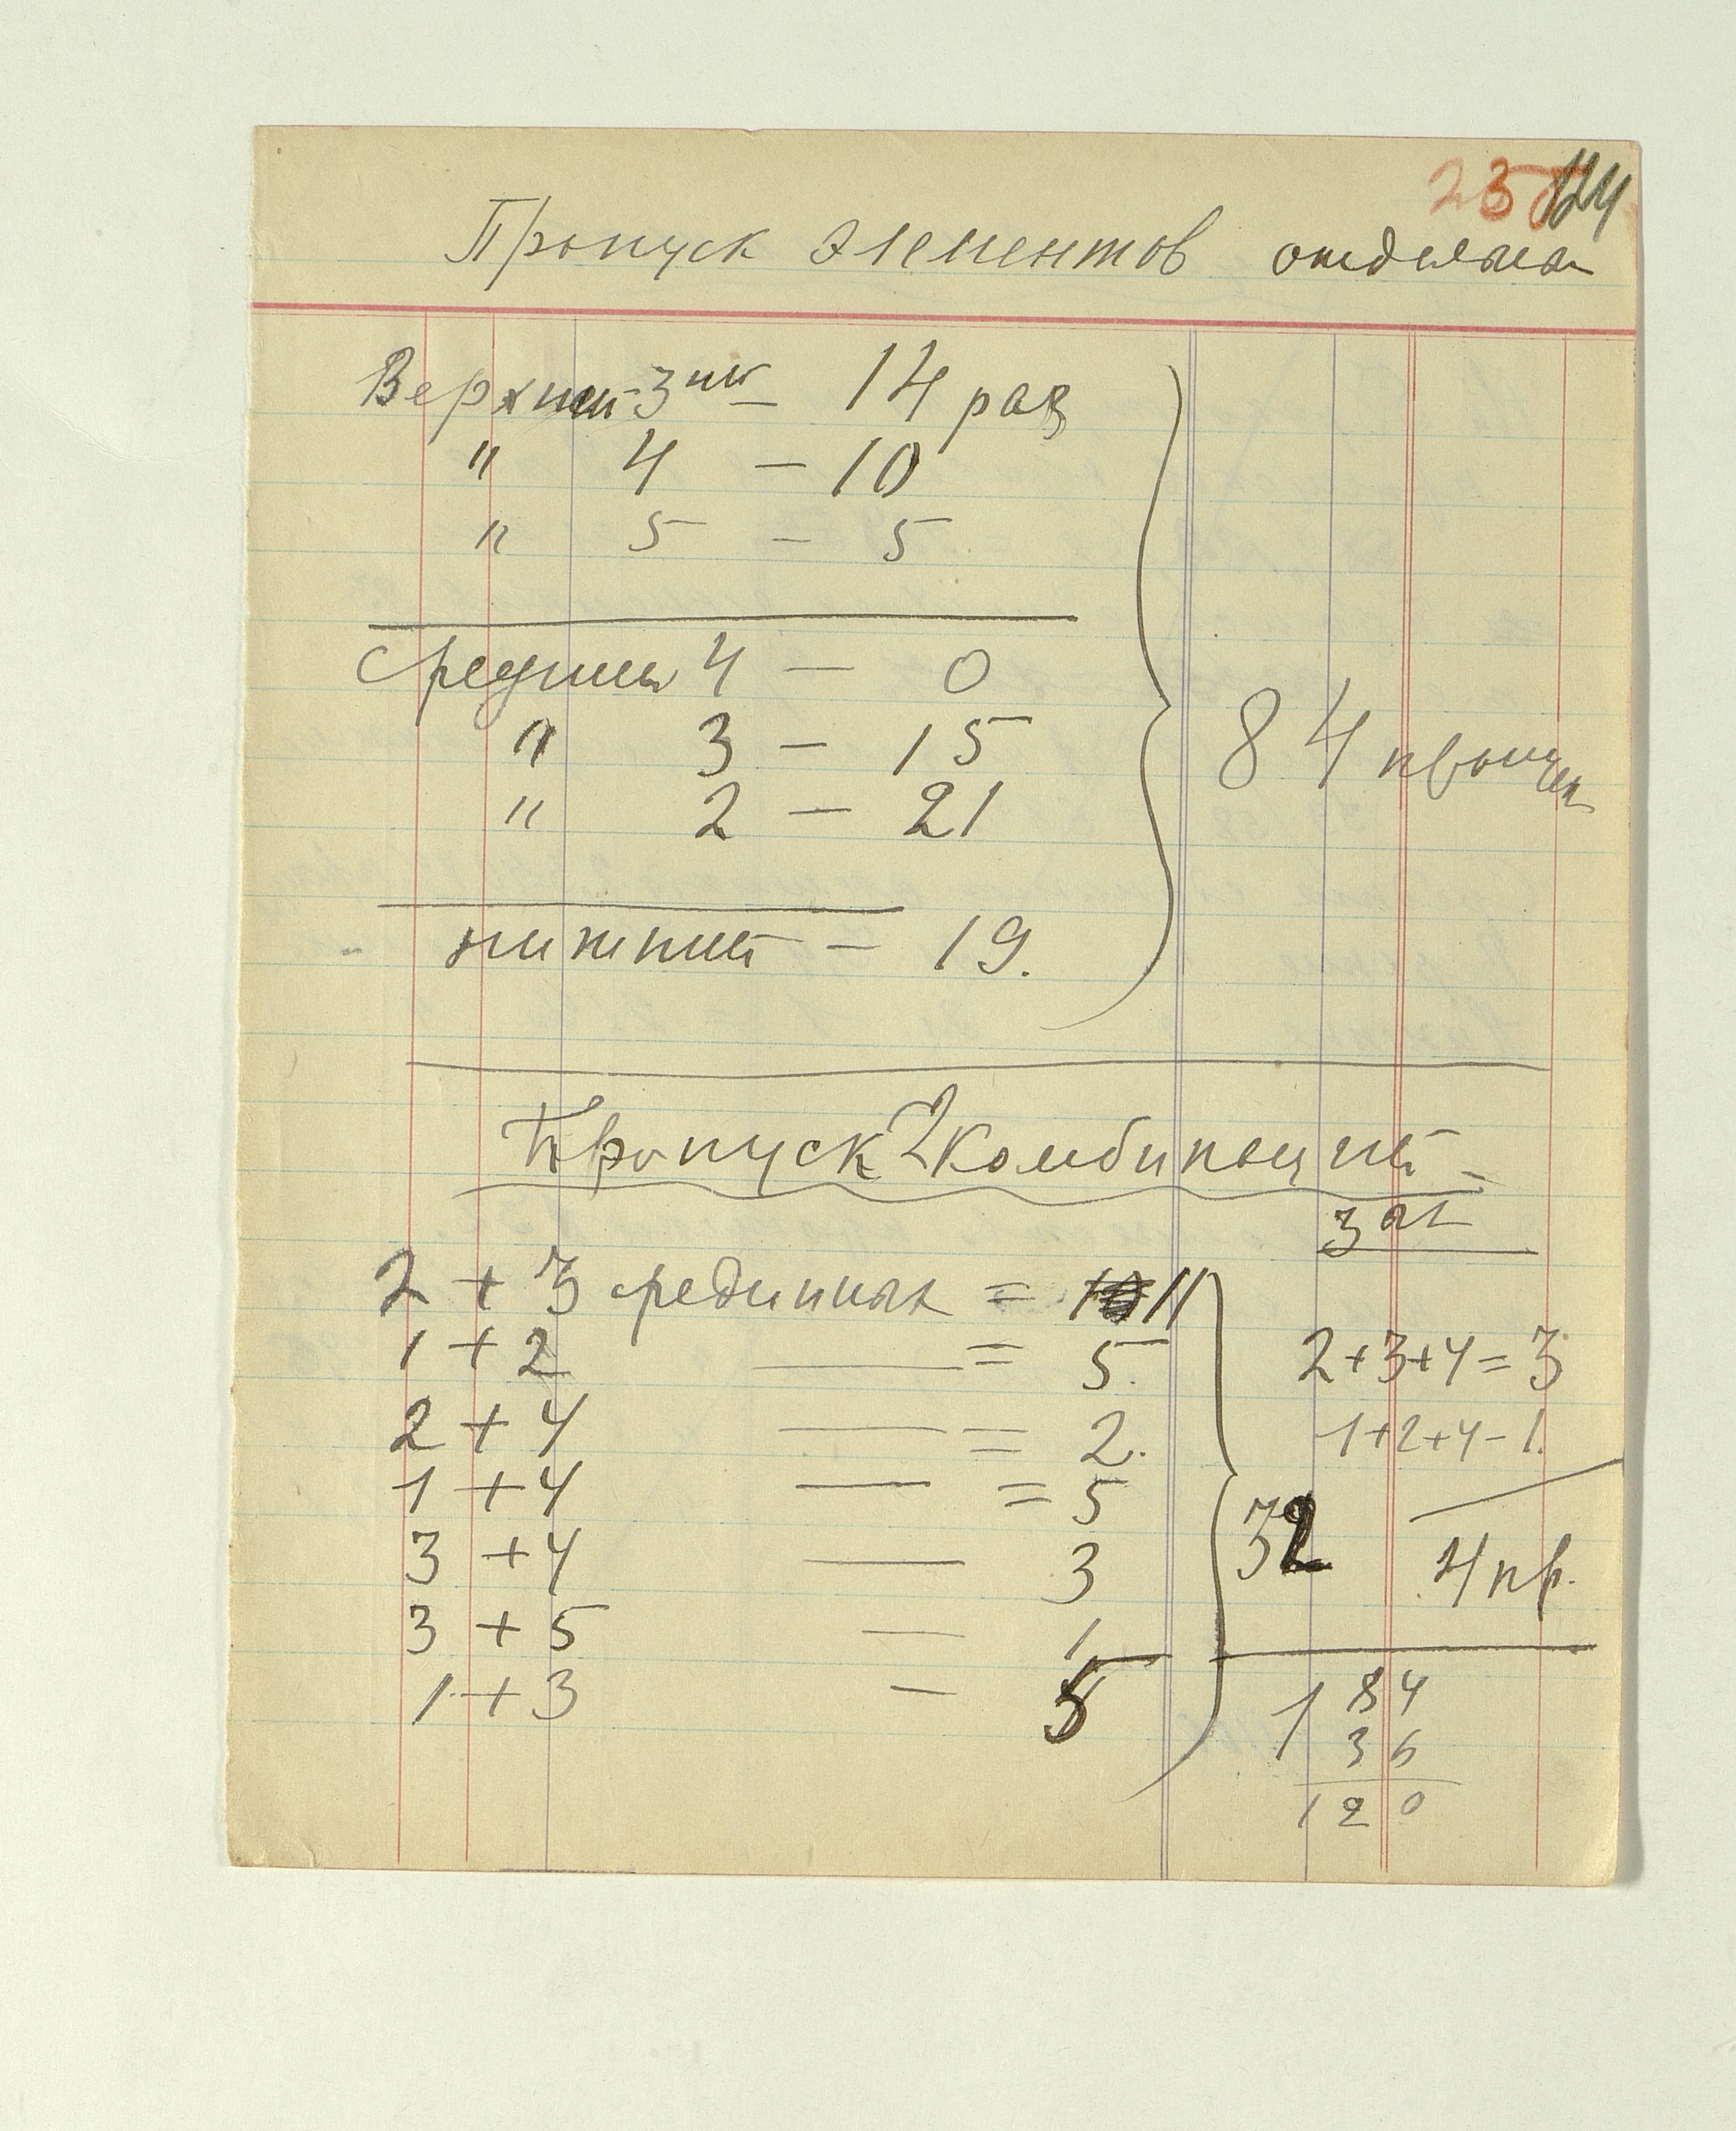 124
Пропуск элементов отдельн
Верхний 3ик — 14 раз
" 4 — 10
" 5 — 5
средины 4 — 0
" 3 — 15
" 2 — 21
84 пропуск
нижний — 19.
Пропуск 2 комбинаций —
3ех
2 + 3 срединных = 11
1 + 2 — = 5.
2+3+4=3
2 + 4 — = 2.
1+2+4-1.
1 + 4 — = 5
3 + 4 — 3
32
4 пр.
3 + 5 — 1
1 + 3 — 5
1 84
36
120